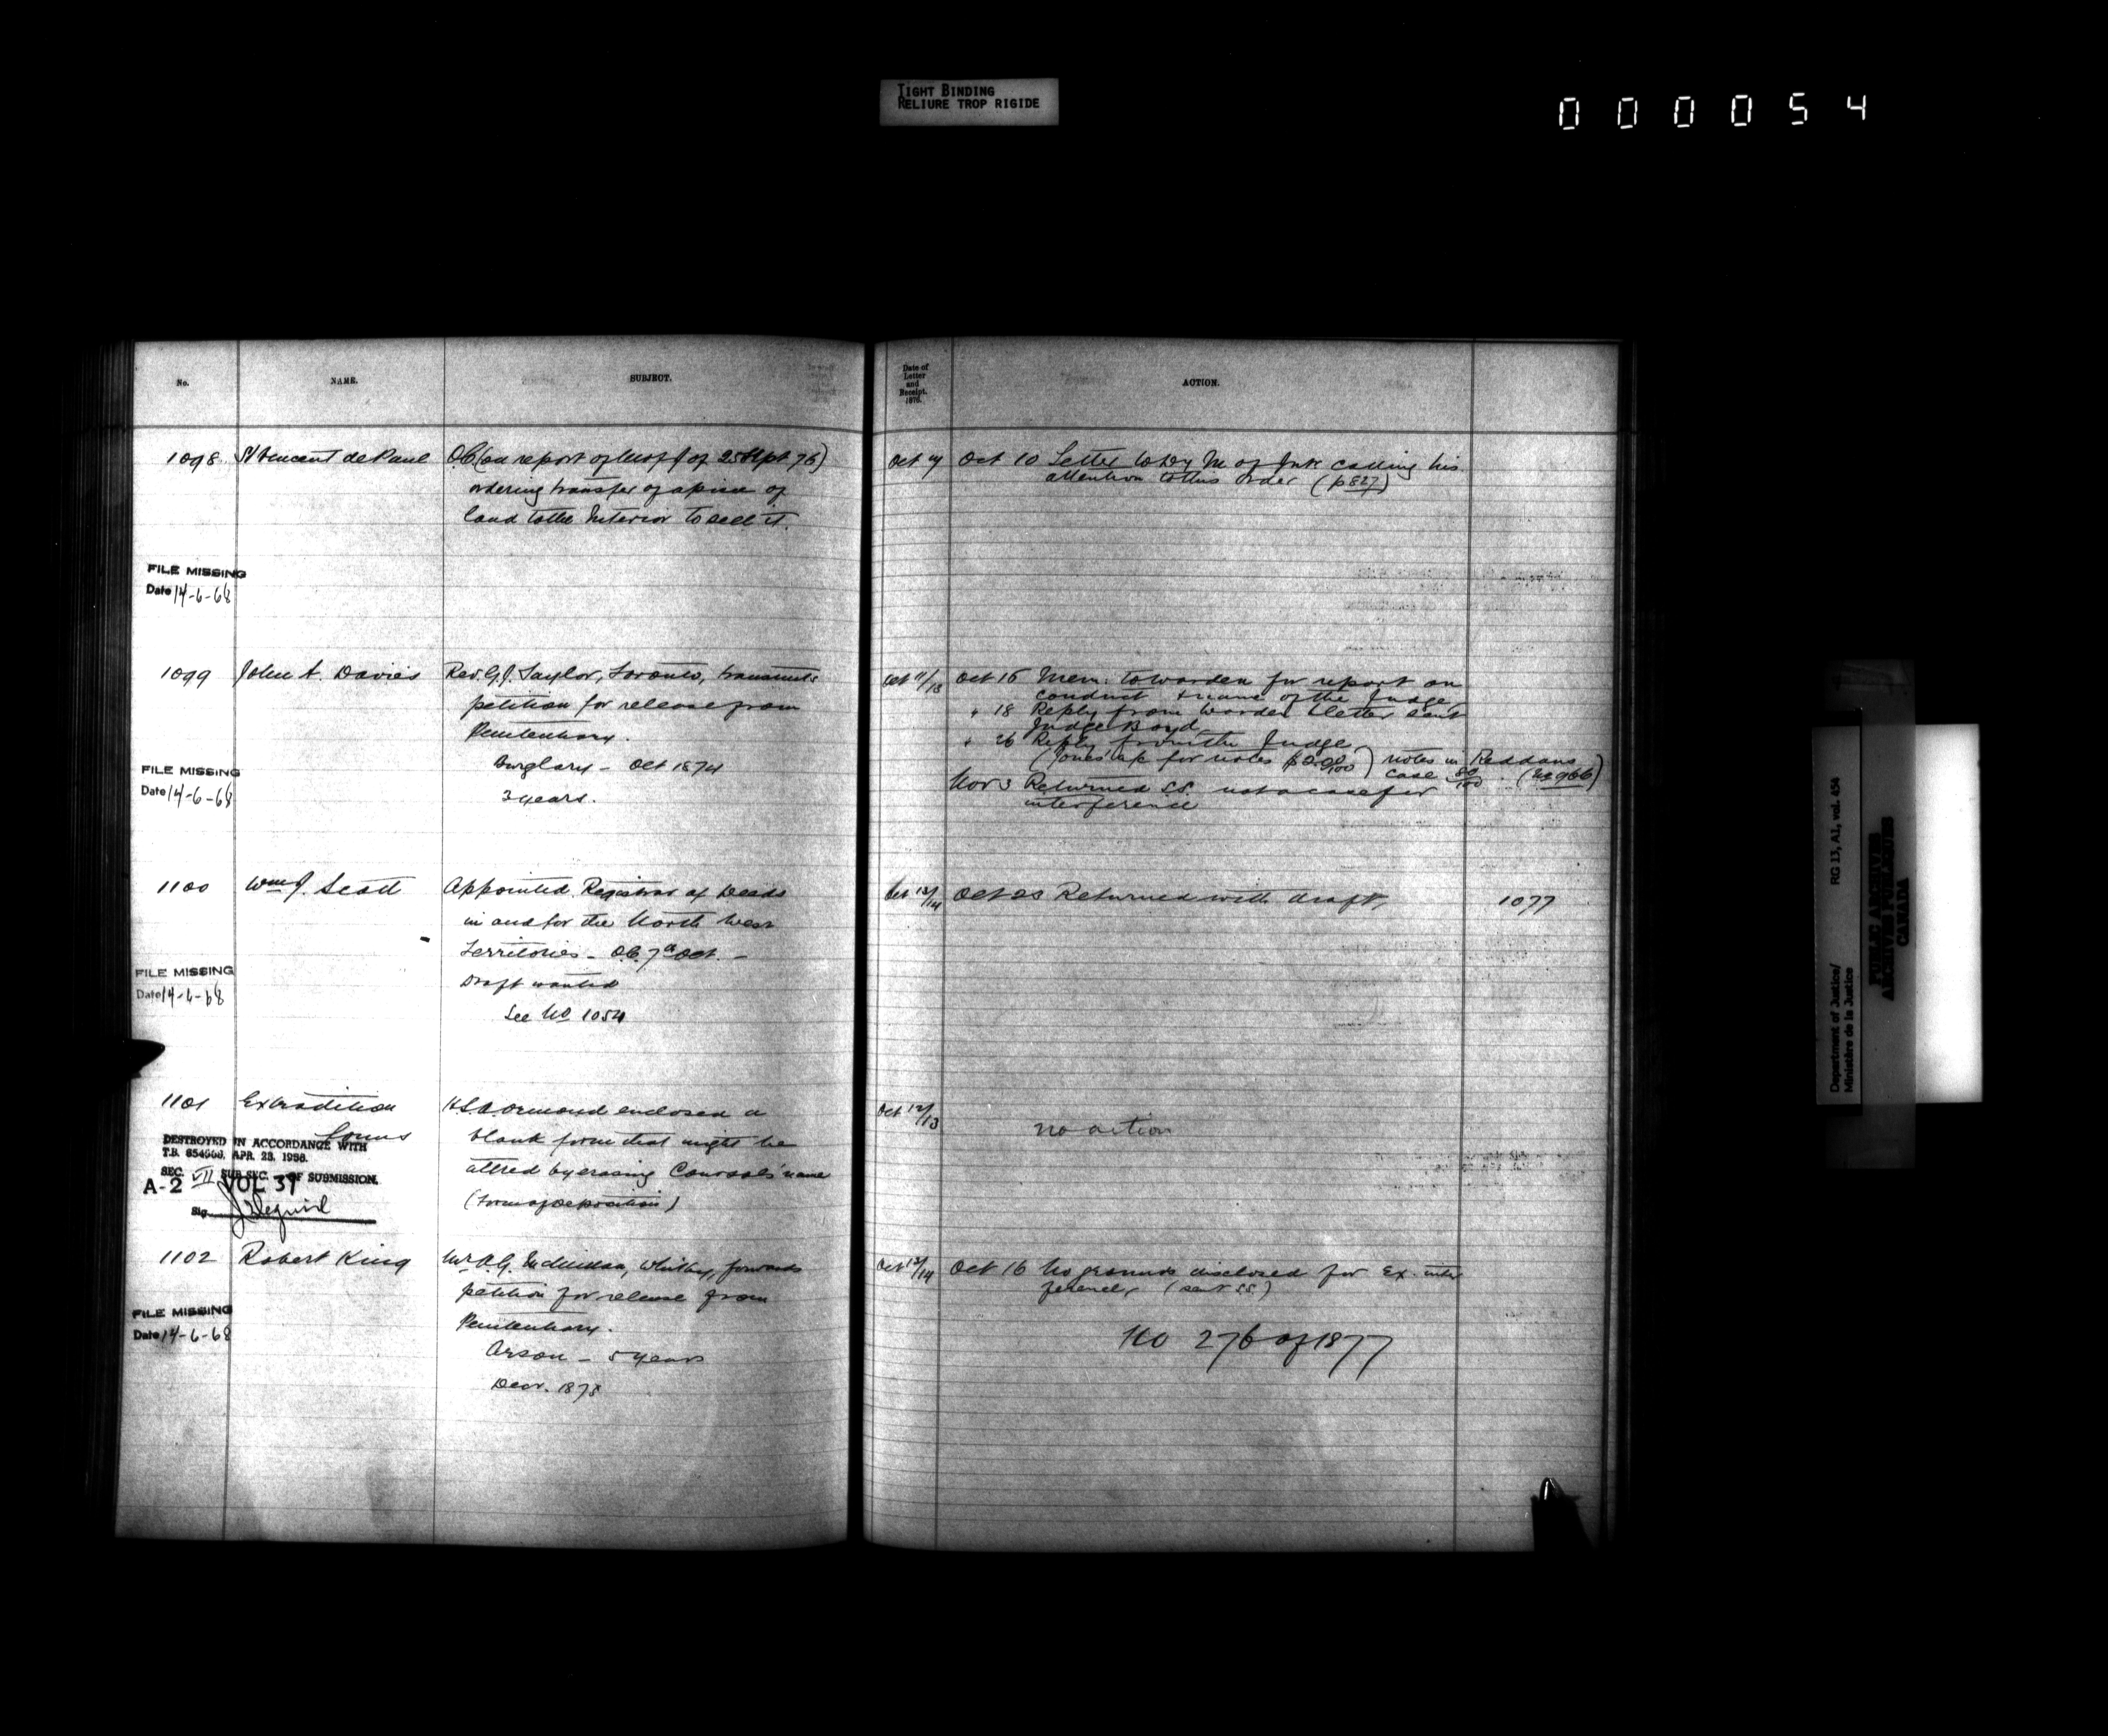 TIGHT BINDING
RELIURE TROP RIGIDE
000054
No.
NAME.
SUBJECT.
Date of
Letter
and
Receipt.
1876.
ACTION.
1098 St Vincent de Paul O.C. (on report of M of J of 25 Sept 76)
ordering transfer of a piece of
land to the Interior to sell it.
Oct 10 Letter to Dy M of Intr calling his
attention to this order (p 827)
FILE MISSING
Date 14-6-68
1099 John A. Davies Rev. G.J. Taylor, Toronto, transmits
petition for release from
Penitentiary.
Burglary - Oct 1874
3 years.
Oct 11/13 Oct 16 Mem. to warden for report on
conduct & name of the Judge
" 18 Reply from Warden & letter sent
Judge Boyd
" 26 Reply from the Judge
for notes notes in Reddans
case 80/100 (No 966)
Nov 3 Returned S.S. not a case for
interference
FILE MISSING
Date 14-6-68
1100 Wm J. Scott Appointed Registrar of Deeds
in and for the North West
Territories - O.C. 7th Oct. -
Draft wanted
See No 1054
Oct 12/14 Oct 23 Returned with draft, 1077
FILE MISSING
Date 14-6-68
1101 Extradition
Forms
Ormond enclosed a
blank form that might be
altred by erasing Consols' name
(Form of Deposition)
Oct 12/13 no action
DESTROYED IN ACCORDANCE WITH
T.B. 854666, APR. 23, 1958.
SEC. VII SUB SEC. OF SUBMISSION.
A-2 VOL 39
Sig.
1102 Robert King Mr A.G. McMillan, Whitby, forwards
petition for release from
Penitentiary.
Arson - 5 years
Decr. 1873
Oct 12/14 Oct 16 No grounds disclosed for Ex. inter
ference, (sent S.S.)
No 276 of 1877
FILE MISSING
Date 14-6-68
Department of Justice/ RG 13, A1, vol. 454
Ministère de la Justice
PUBLIC ARCHIVES
ARCHIVES PUBLIQUES
CANADA